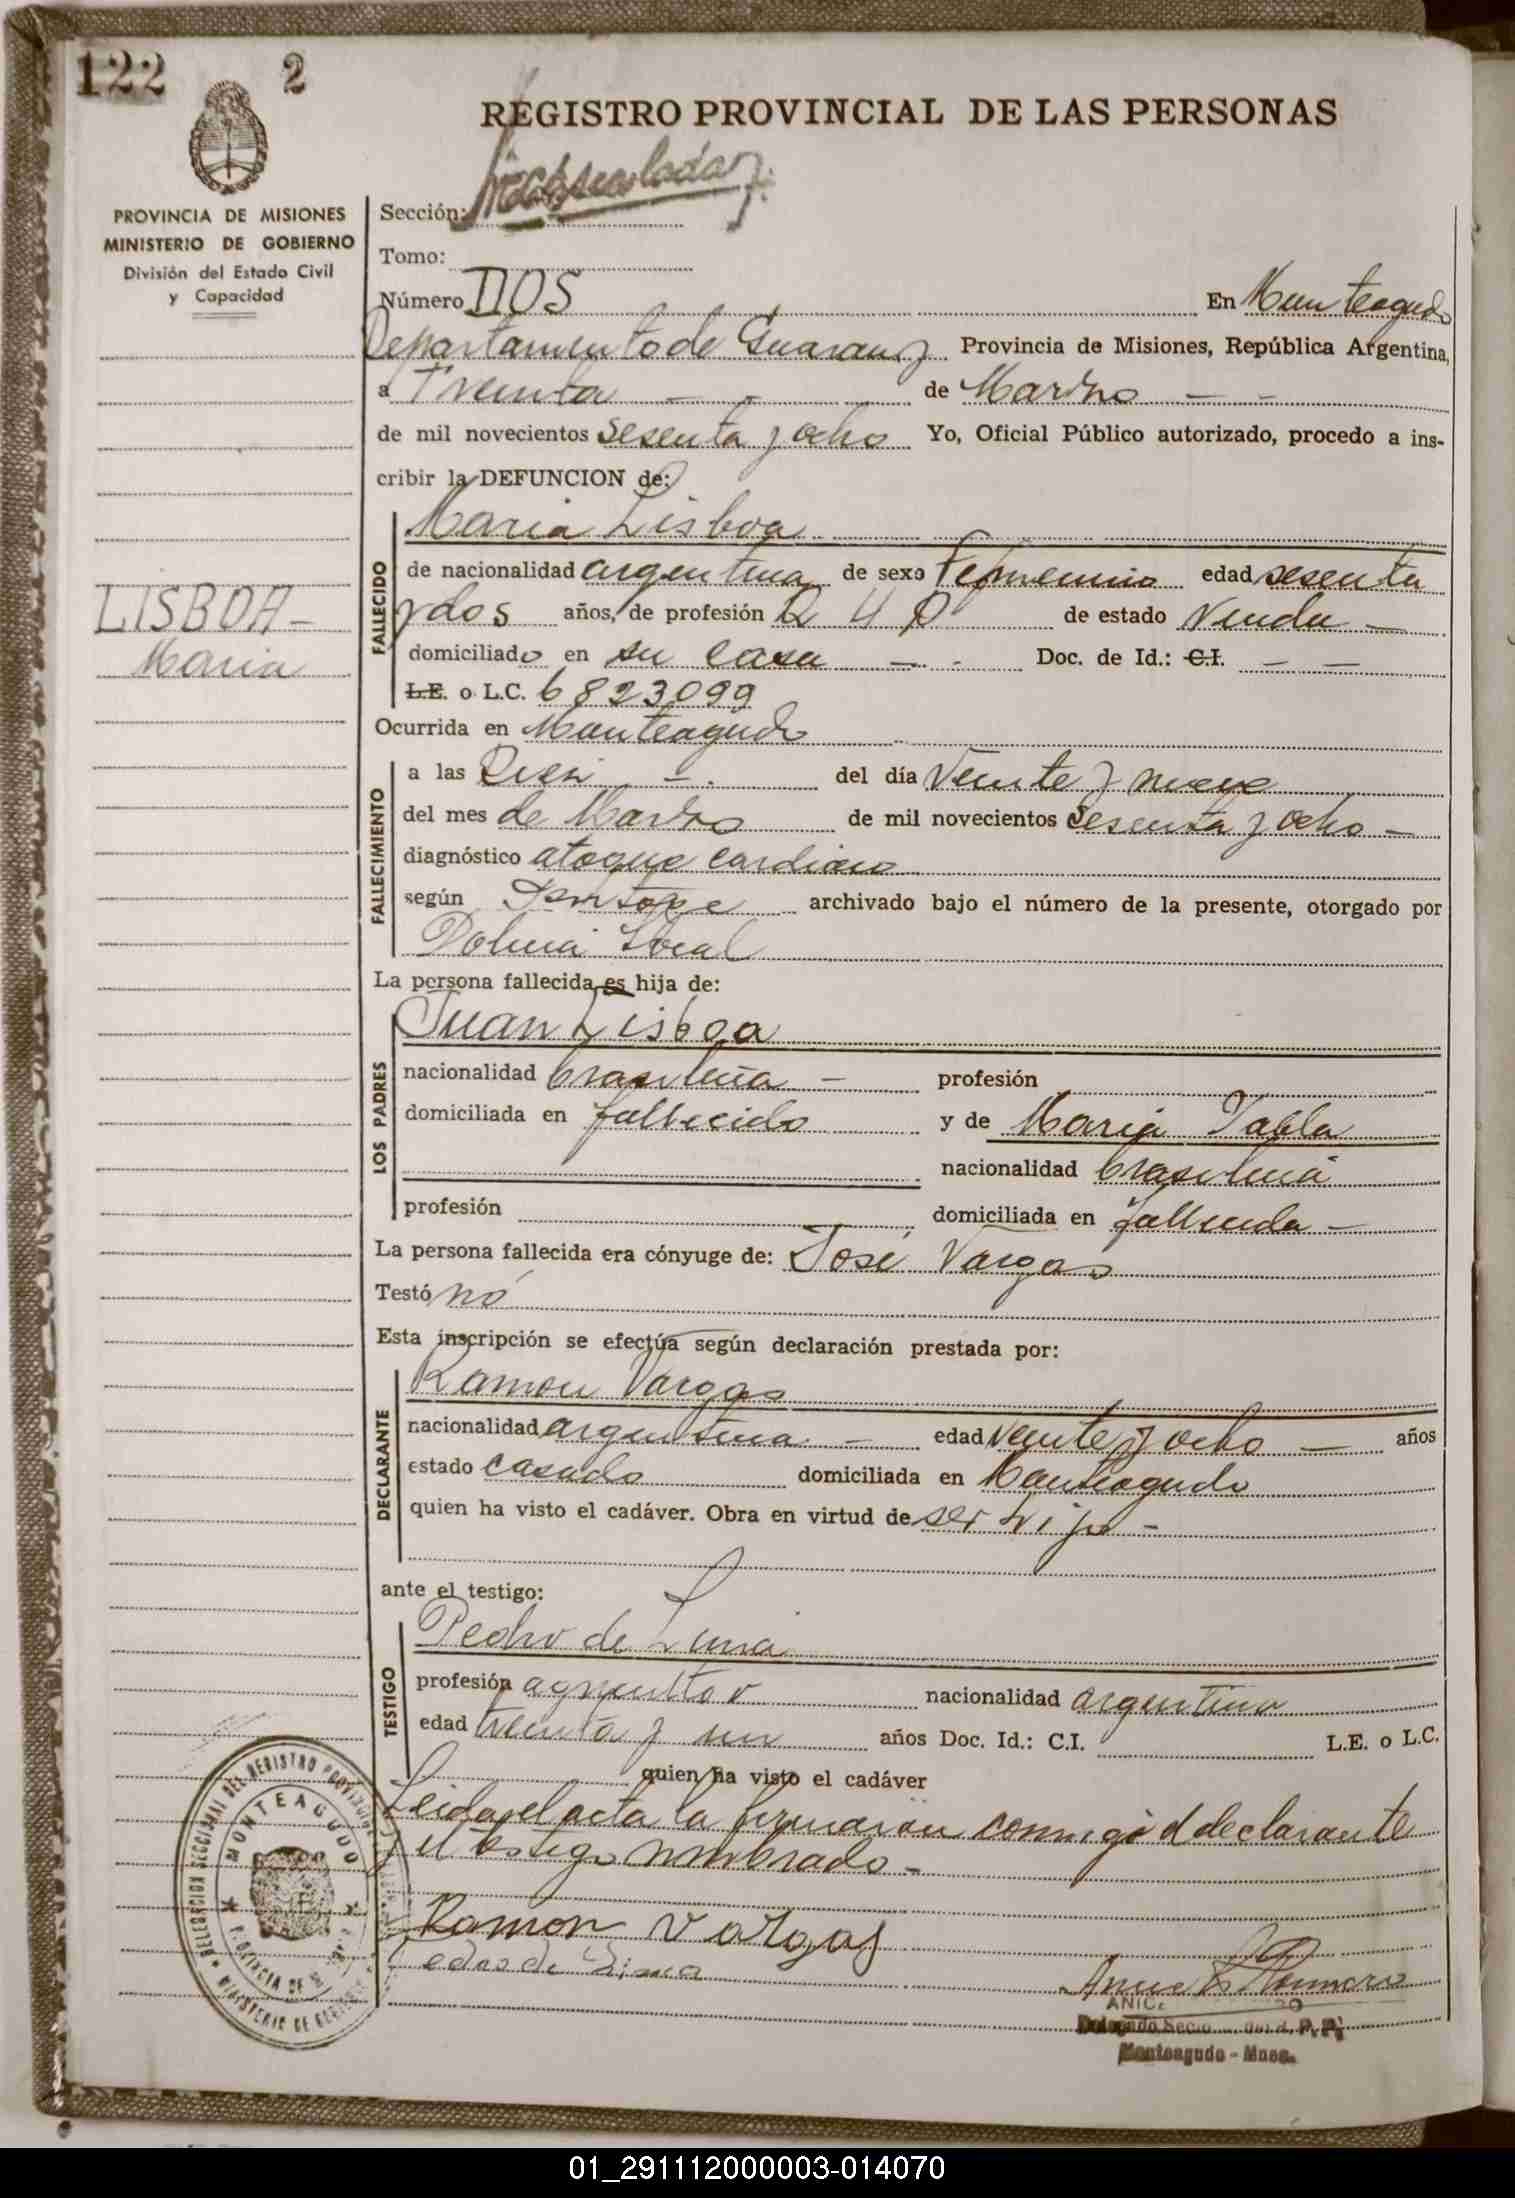 122 2
REGISTRO PROVINCIAL DE LAS PERSONAS
PROVINCIA DE MISIONES
MINISTERIO DE GOBIERNO
División del Estado Civil
y Capacidad
Sección:
Tomo:
Número DOS En Monteagudo
Departamento de Guaraní Provincia de Misiones, República Argentina,
a Treinta - - de Marzo - -
de mil novecientos sesenta y ocho Yo, Oficial Público autorizado, procedo a ins-
cribir la DEFUNCION de:
LISBOA -
Maria
FALLECIDO
Maria Lisboa
de nacionalidad argentina de sexo Femenino edad sesenta
y dos años, de profesión Q H D de estado Viuda -
domiciliado en su casa - - Doc. de Id.: C.I. - -
L.E. o L.C. 6823099
Ocurrida en Monteagudo
FALLECIMIENTO
a las Diez - . del día Veinte y nueve
del mes de Marzo de mil novecientos sesenta y ocho -
diagnóstico ataque cardiaco
según archivado bajo el número de la presente, otorgado por
Policia local
La persona fallecida es hija de:
LOS PADRES
Juan Lisboa
nacionalidad brasileña - profesión
domiciliada en fallecido y de Maria
nacionalidad brasileña
profesión domiciliada en fallecida -
La persona fallecida era cónyuge de: José Vargas
Testó nó
Esta inscripción se efectúa según declaración prestada por:
DECLARANTE
Ramon Vargas
nacionalidad argentina - edad veinte y ocho - años
estado casado domiciliada en Monteagudo
quien ha visto el cadáver. Obra en virtud de ser hijo -
ante el testigo:
TESTIGO
Pedro de Lima
profesión agricultor nacionalidad argentino
edad treinta y un años Doc. Id.: C.I. L.E. o L.C.
quien ha visto el cadáver
Leida el acta la firmaron conmigo el declarante
y el testigo nombrado -
Ramon Vargas
Pedro de Lima
DELEGACION SECCIONAL DEL REGISTRO PROVINCIAL
MONTEAGUDO
PROVINCIA DE
MINISTERIO DE
Monteagudo - Mnes.
01_291112000003-014070